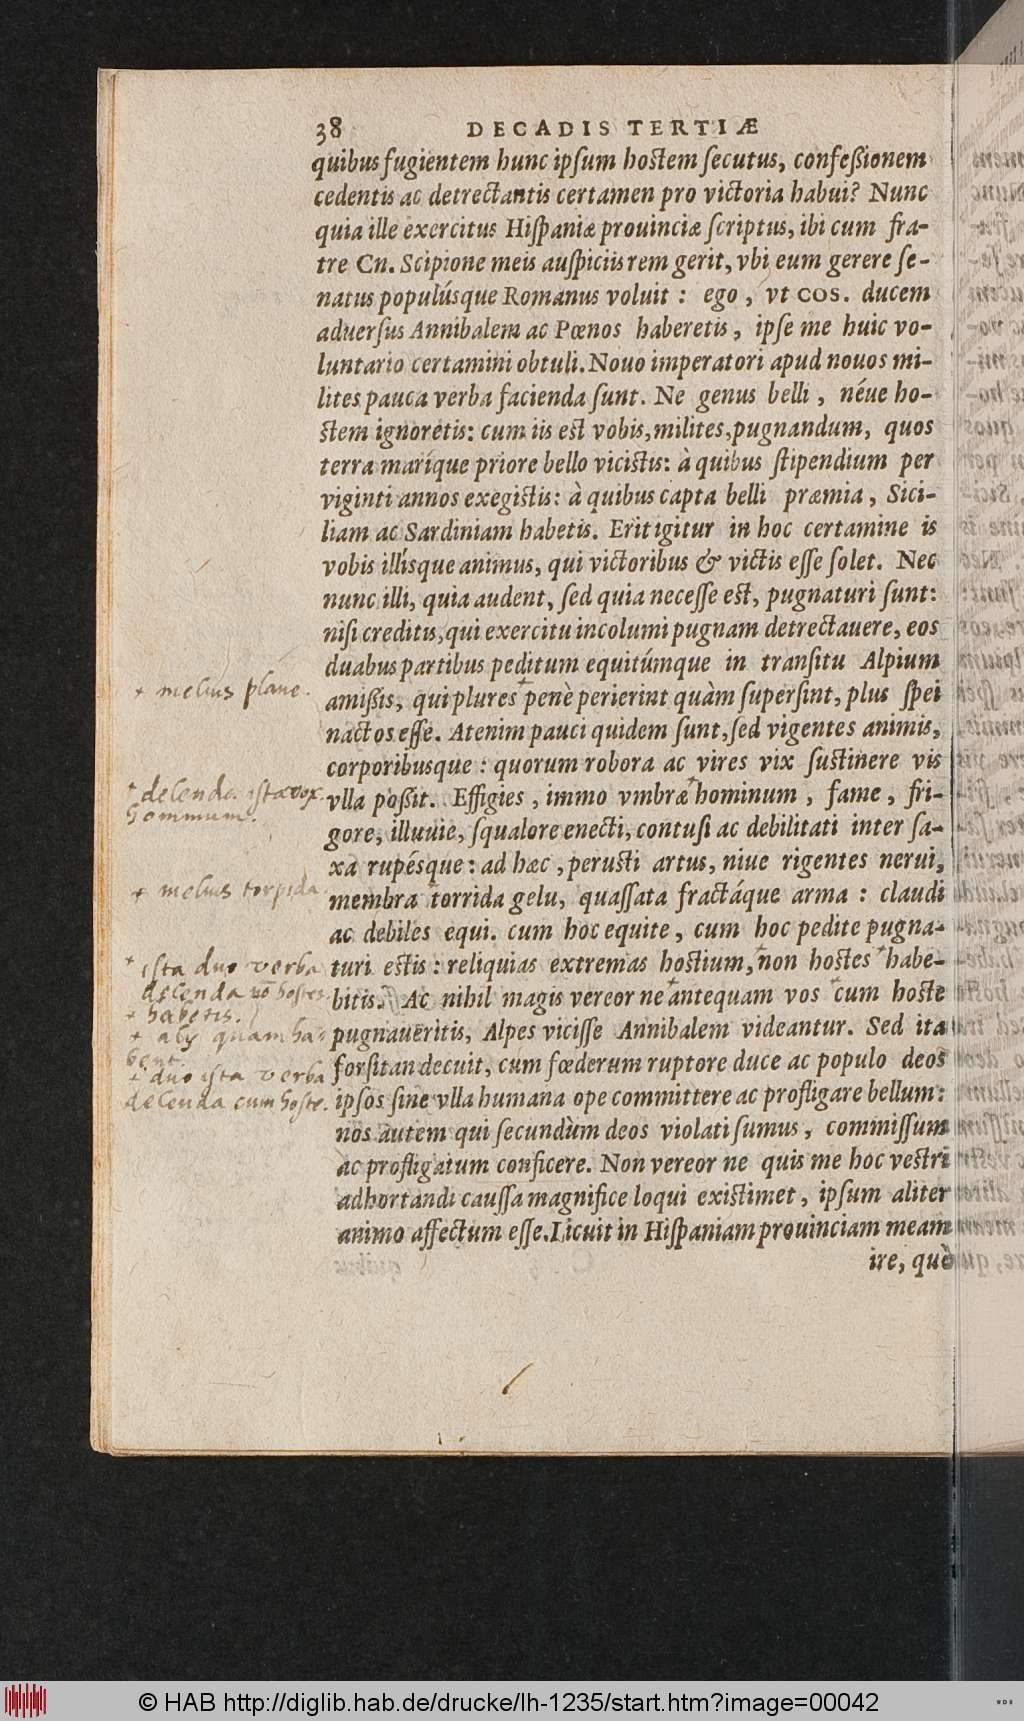 38 DECADIS TERTIÆ
quibus fugientem hunc ipsum hostem secutus, confeßionem
cedentis ac detrectantis certamen pro victoria habui? Nunc
quia ille exercitus Hispaniæ prouinciæ scriptus, ibi cum fra-
tre Cn. Scipione meis auspiciis rem gerit, vbi eum gerere se-
natus populúsque Romanus voluit : ego, vt COS. ducem
aduersus Annibalem ac Pœnos haberetis, ipse me huic vo-
luntario certamini obtuli. Nouo imperatori apud nouos mi-
lites pauca verba facienda sunt. Ne genus belli, néue ho-
stem ignoretis: cum iis est vobis, milites, pugnandum, quos
terra maríque priore bello vicistis: à quibus stipendium per
viginti annos exegistis: à quibus capta belli præmia, Sici-
liam ac Sardiniam habetis. Erit igitur in hoc certamine is
vobis illísque animus, qui victoribus & victis esse solet. Nec
nunc illi, quia audent, sed quia necesse est, pugnaturi sunt:
nisi creditis, qui exercitu incolumi pugnam detrectauere, eos
duabus partibus peditum equitúmque in transitu Alpium
+ melius plane.
amißis, qui plures + penè perierint quàm supersint, plus spei
nactos esse. At enim pauci quidem sunt, sed vigentes animis,
corporibusque : quorum robora ac vires vix sustinere vis
+ delenda ista vox
hominum.
vlla poßit. Effigies, immo vmbræ + hominum, fame, fri-
gore, illuuie, squalore enecti, contusi ac debilitati inter sa-
xa rupésque : ad hæc, perusti artus, niue rigentes nerui,
+ melius torpida
membra + torrida gelu, quassata fractáque arma : claudi
ac debiles equi. cum hoc equite, cum hoc pedite pugna-
+ ista duo verba
turi estis : reliquias extremas hostium, + non hostes + habe-
delenda nõ hostes
+ habetis.
bitis. Ac nihil magis vereor ne + antequam vos + cum hoste
+ quam ha-
bent
pugnaueritis, Alpes vicisse Annibalem videantur. Sed ita
+ duo ista verba
forsitan decuit, cum fœderum ruptore duce ac populo deos
delenda cum hoste.
ipsos sine vlla humana ope committere ac profligare bellum:
nos autem qui secundùm deos violati sumus, commissum
ac profligatum conficere. Non vereor ne quis me hoc vestri
adhortandi caussa magnifice loqui existimet, ipsum aliter
animo affectum esse. Licuit in Hispaniam prouinciam meam
ire, quò
© HAB http://diglib.hab.de/drucke/lh-1235/start.htm?image=00042